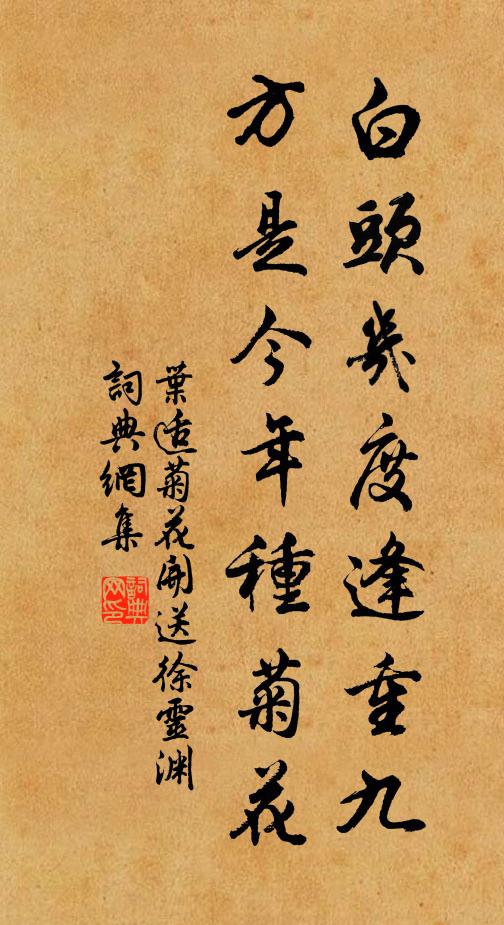 白頭幾度逢重九
方是今年種菊花
葉適菊花開送徐靈渊
詞典網集
詞典網印